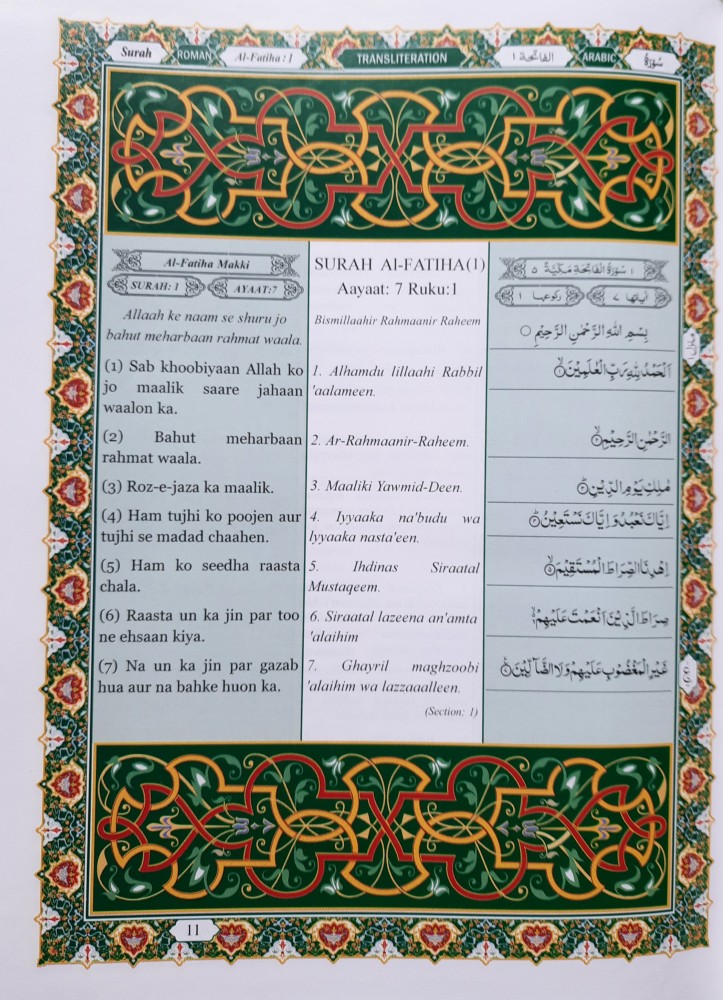 Surah ROMAN Al-Fatiha : 1 TRANSLITERATION الفاتحة ١ ARABIC سُوْرَةُ
Al-Fatiha Makki
SURAH: 1 AYAAT:7
Allaah ke naam se shuru jo
bahut meharbaan rahmat waala.
(1) Sab khoobiyaan Allah ko
jo maalik saare jahaan
waalon ka.
(2) Bahut meharbaan
rahmat waala.
(3) Roz-e-jaza ka maalik.
(4) Ham tujhi ko poojen aur
tujhi se madad chaahen.
(5) Ham ko seedha raasta
chala.
(6) Raasta un ka jin par too
ne ehsaan kiya.
(7) Na un ka jin par gazab
hua aur na bahke huon ka.
SURAH Al-FATIHA(1)
Aayaat: 7 Ruku:1
Bismillaahir Rahmaanir Raheem
1. Alhamdu lillaahi Rabbil
'aalameen.
2. Ar-Rahmaanir-Raheem.
3. Maaliki Yawmid-Deen.
4. Iyyaaka na'budu wa
lyyaaka nasta'een.
5. Ihdinas Siraatal
Mustaqeem.
6. Siraatal lazeena an'amta
'alaihim
7. Ghayril maghzoobi
'alaihim wa lazzaaalleen.
(Section: 1)
١ سُوْرَةُ الْفَاتِحَةِ مَكِّيَّةٌ ٥
اٰیاتها ٧ رکوعها ١
بِسْمِ اللهِ الرَّحْمٰنِ الرَّحِيْمِ ○
اَلْحَمْدُ لِلّٰهِ رَبِّ الْعٰلَمِيْنَ ۙ﴿١﴾
الرَّحْمٰنِ الرَّحِيْمِ ۙ﴿٢﴾
مٰلِكِ يَوْمِ الدِّيْنِ ؕ﴿٣﴾
اِيَّاكَ نَعْبُدُ وَاِيَّاكَ نَسْتَعِيْنُ ؕ﴿٤﴾
اِهْدِنَا الصِّرَاطَ الْمُسْتَقِيْمَ ۙ﴿٥﴾
صِرَاطَ الَّذِيْنَ اَنْعَمْتَ عَلَيْهِمْ ۙ﴿٦﴾
غَيْرِ الْمَغْضُوْبِ عَلَيْهِمْ وَلَا الضَّآلِّيْنَ ﴿٧﴾
11